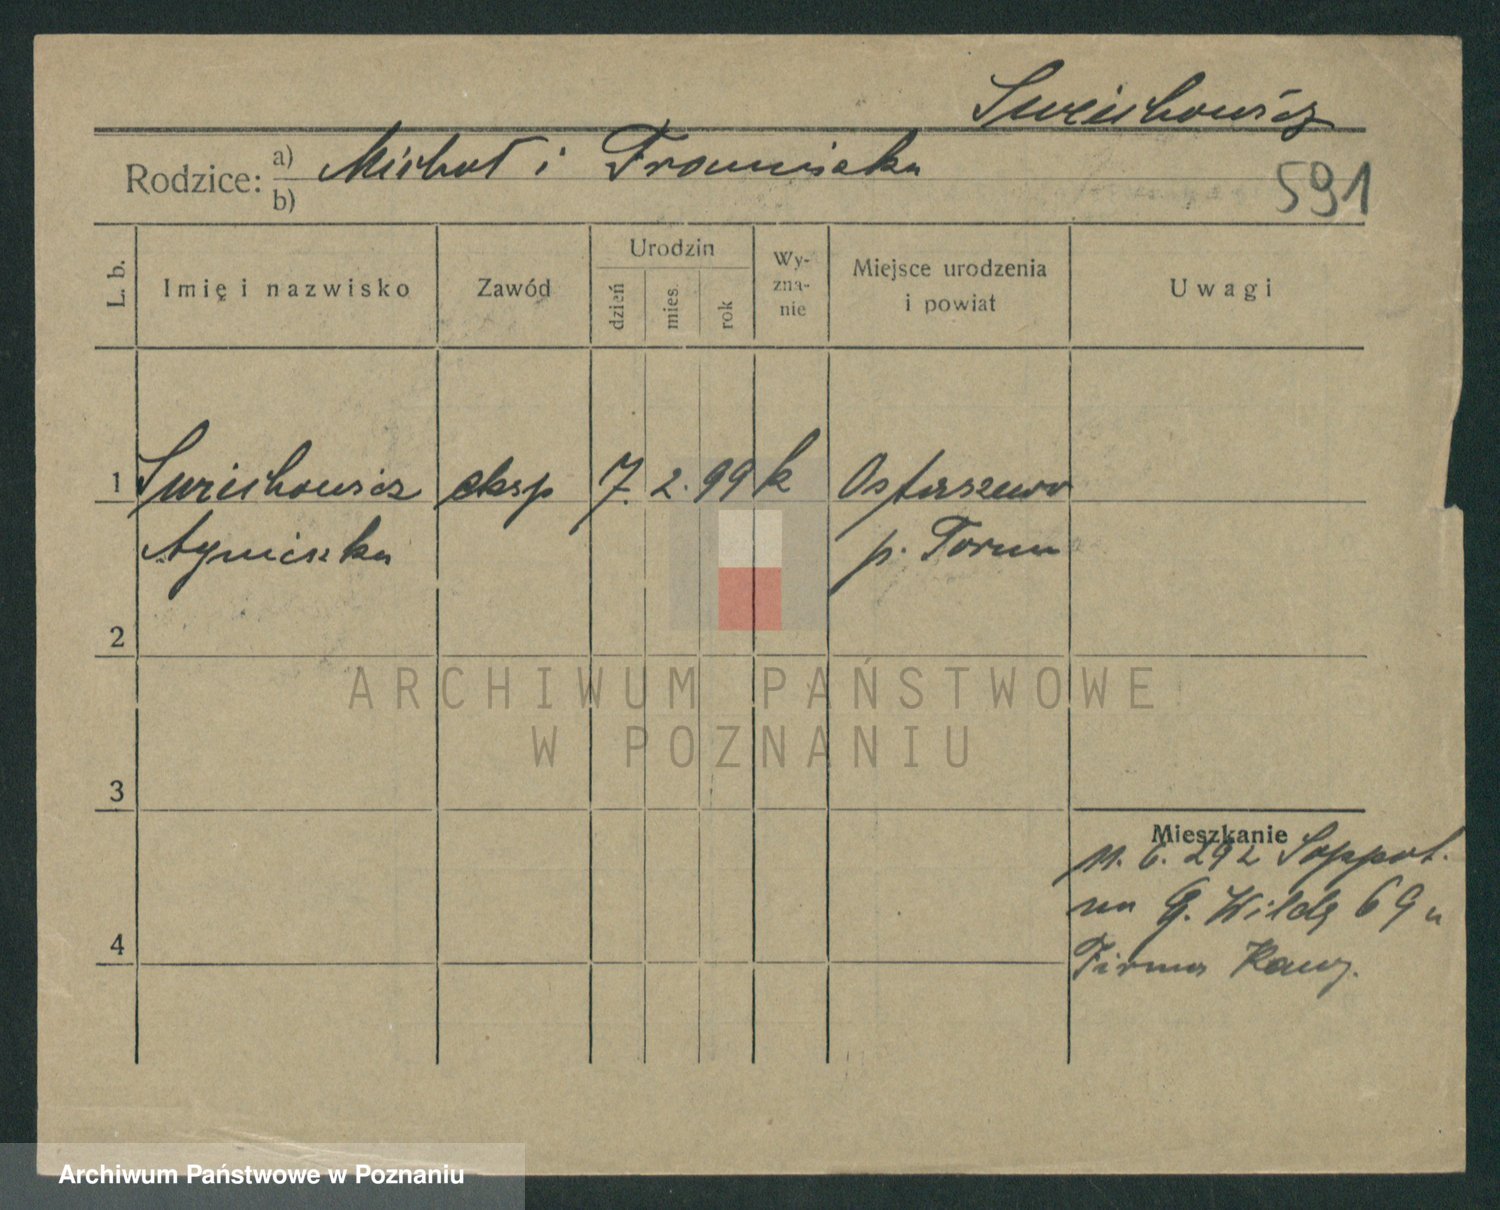 591
Rodzice: a) Michał i Franciszka
b)
L. b.
Imię i nazwisko
Zawód
Urodzin
dzień
mies.
rok
Wy-
zna-
nie
Miejsce urodzenia
i powiat
Uwagi
1 eksp 7. 2. 99 k Ostaszewo
Agnieszka p. Toruń
2
ARCHIWUM PAŃSTWOWE
W POZNANIU
3
Mieszkanie
292 Soppot.
na G. Wildę 69 u
4
Firma
Archiwum Państwowe w Poznaniu